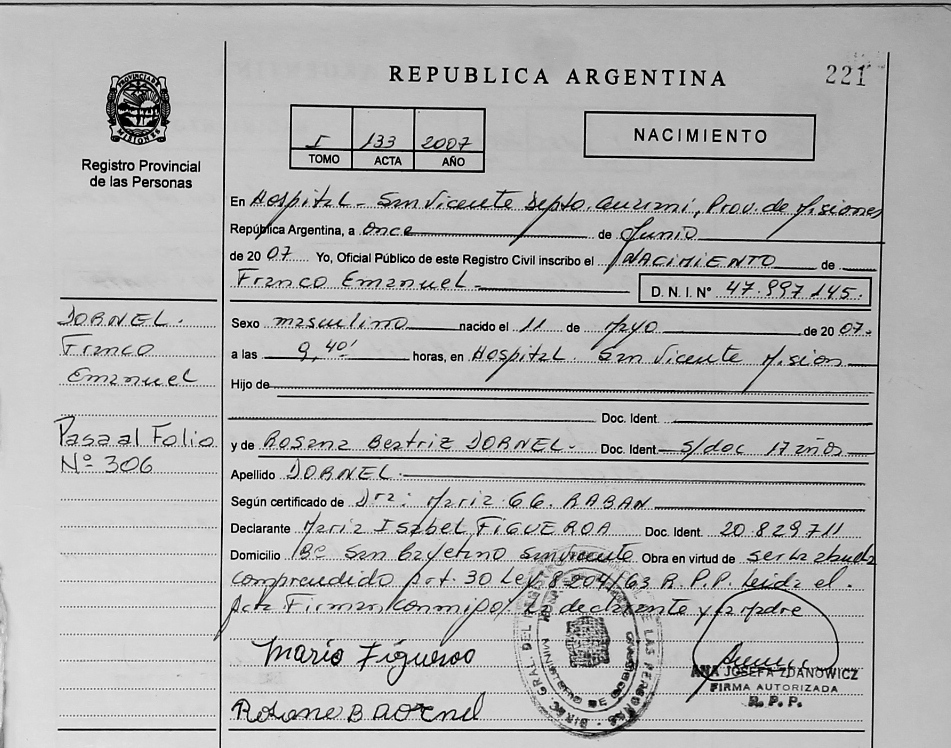 REPUBLICA ARGENTINA
221
PROVINCIA DE MISIONES
Registro Provincial
de las Personas
I 133 2007
TOMO ACTA AÑO
NACIMIENTO
En Hospital - San Vicente Depto. Guarani, Prov. de Misiones
República Argentina, a Once de Junio
de 20 07. Yo, Oficial Público de este Registro Civil inscribo el NACIMIENTO de
Franco Emanuel D.N.I. N° 47.997.145.
Sexo masculino nacido el 11 de Mayo de 20 07.
a las 9,40' horas, en Hospital. San Vicente Mision
Hijo de
Doc. Ident.
y de Rosana Beatriz DORNEL. Doc. Ident. S/doc 17 años
Apellido DORNEL.
Según certificado de Dra: Maria GG. RABAN
Declarante Maria Isabel FIGUEROA Doc. Ident. 20.829.711
Domicilio Bº San Cayetano San Vicente Obra en virtud de ser la abuela
comprendido Art. 30 Ley 8.204/63 R.P.P. Leida el
Acta Firman conmigo, La declarante y la Madre
DORNEL.
Franco
Emanuel
Pasa al Folio
Nº 306
Maria Figueroa
Rosana B Dornel
DE LAS PERSONAS
ANA JOSEFA ZDANOWICZ
FIRMA AUTORIZADA
R. P. P.